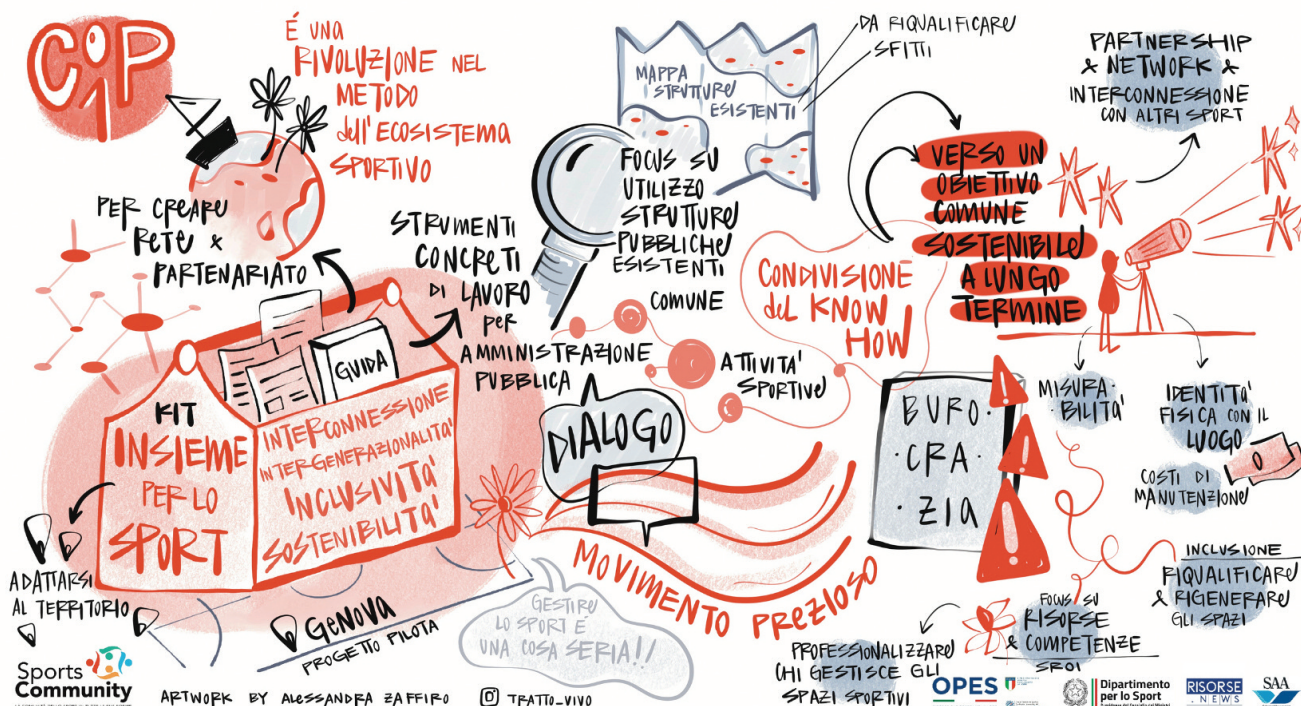 CIP
É UNA
RIVOLUZIONE NEL
METODO
dell'ECOSISTEMA
SPORTIVO
PER CREARE
RETE &
PARTENARIATO
STRUMENTI
CONCRETI
DI LAVORO
PER
AMMINISTRAZIONE
PUBBLICA
GUIDA
KIT
INSIEME
PER LO
SPORT
INTERCONNESSIONE
INTERGENERAZIONALITA'
INCLUSIVITA'
SOSTENIBILITA'
ADATTARSI
AL TERRITORIO
GENOVA
PROGETTO PILOTA
MAPPA
STRUTTURE
ESISTENTI
DA RIQUALIFICARE
SFITTI
FOCUS SU
UTILIZZO
STRUTTURE
PUBBLICHE
ESISTENTI
COMUNE
ATTIVITA'
SPORTIVE
DIALOGO
CONDIVISIONE
del KNOW
HOW
MOVIMENTO PREZIOSO
GESTIRE
LO SPORT É
UNA COSA SERIA!!
VERSO UN
OBIETTIVO
COMUNE
SOSTENIBILE
A LUNGO
TERMINE
PARTNERSHIP
& NETWORK &
INTERCONNESSIONE
CON ALTRI SPORT
BURO.
.CRA.
.ZIA
MISURA.
BILITÀ
IDENTITÀ
FISICA CON IL
LUOGO
COSTI DI
MANUTENZIONE
INCLUSIONE
RIQUALIFICARE
& RIGENERARE
GLI SPAZI
FOCUS SU
RISORSE
& COMPETENZE
SROI
PROFESSIONALIZZARE
CHI GESTISCE GLI
SPAZI SPORTIVI
Sports
Community
ARTWORK BY ALESSANDRA ZAFFIRO
TRATTO_VIVO
OPES
Dipartimento
per lo Sport
RISORSE
.NEWS
SAA